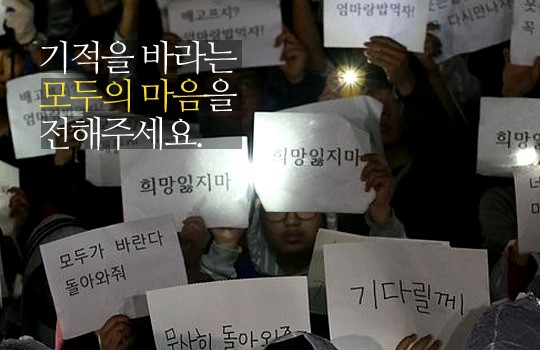 기적을 바라는
모두의 마음을
전해주세요.
배고프지?
엄마랑밥먹자!
다시만나자
꼭
배고
엄마
희망잃지마
희망잃지마
희망잃지
모두가 바란다
돌아와줘
무사히 돌아와줘
기다릴께